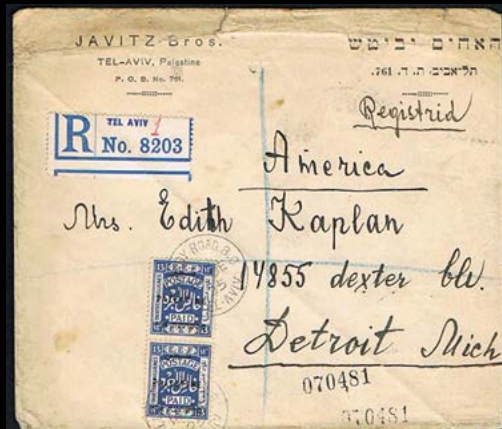 JAVITZ Bros.
TEL-AVIV, Palestine
P. O. B. No. 761.
האחים יביטש
תל־אביב· ת. ד. 761.
Registrid
R TEL AVIV 1
No. 8203
America
Mrs. Edith Kaplan
14855 dexter blv.
Detroit Mich
070481
070481
E.E.F.
POSTAGE
PAID
E.E.F. 13
E.E.F.
POSTAGE
PAID
E.E.F. 13